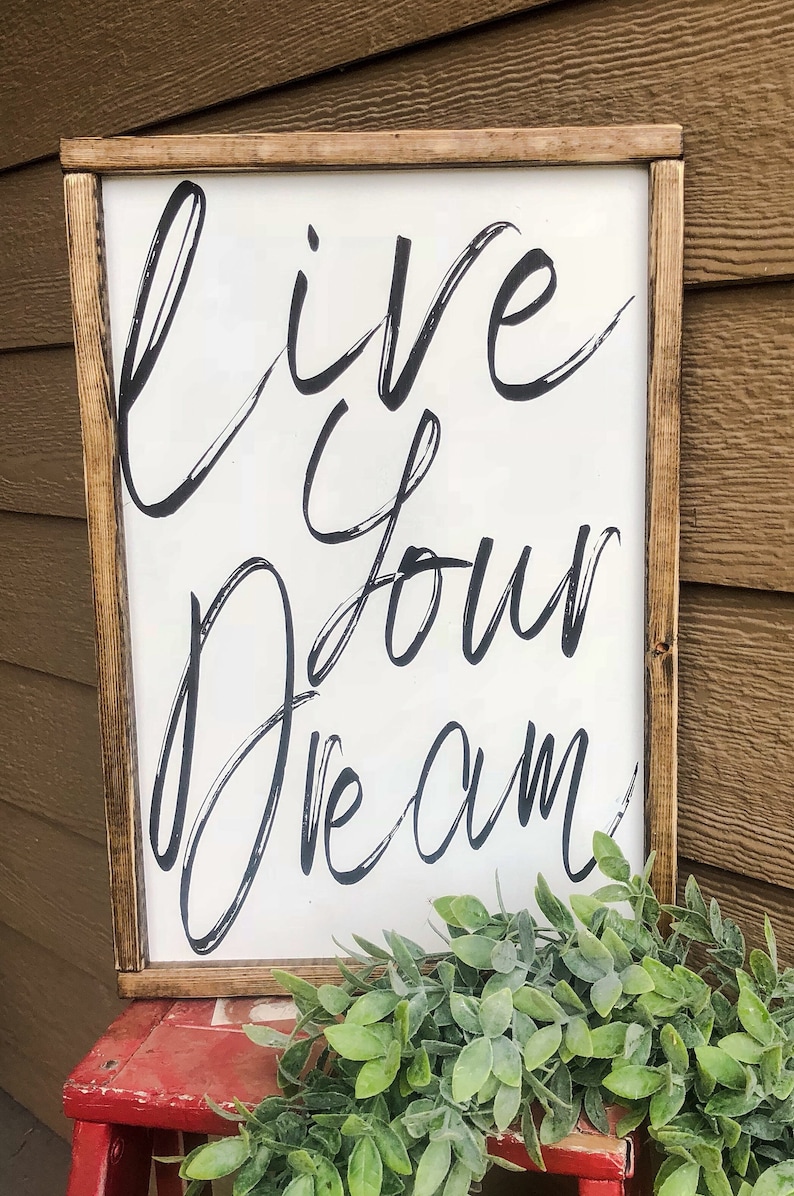 live
Your
Dream